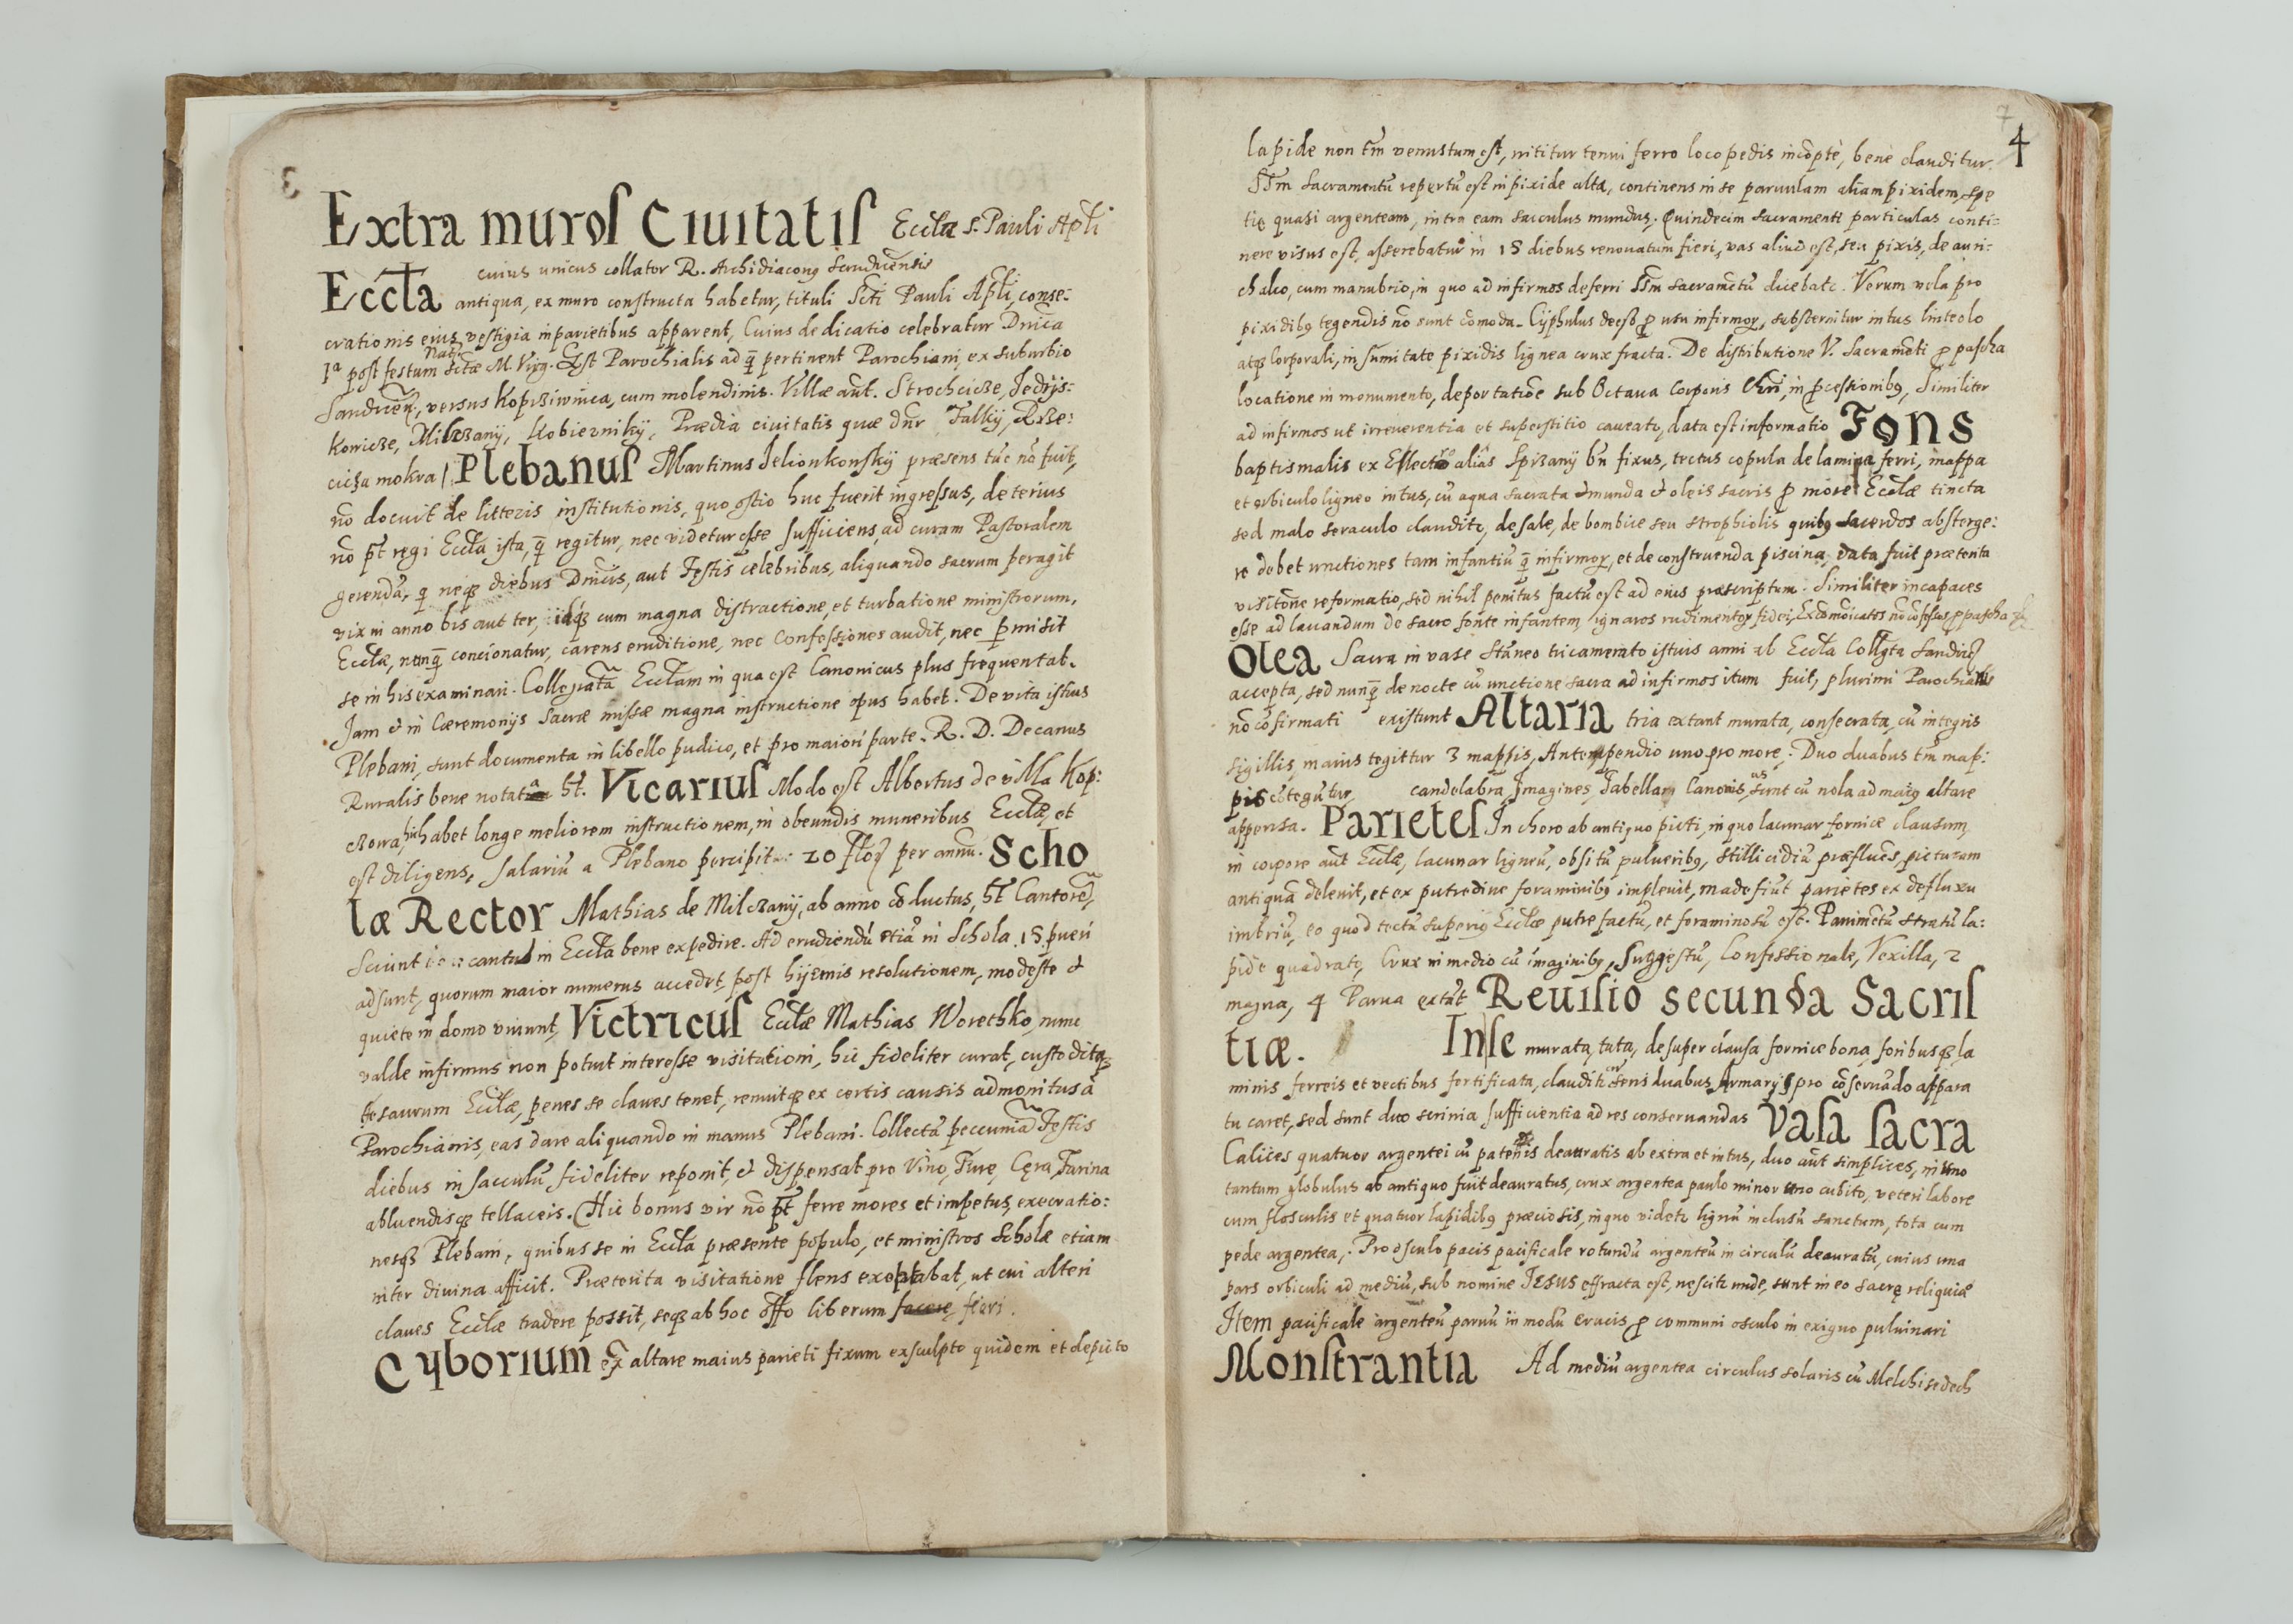 3
Extra muros Ciuitatis Eccla S. Pauli Apli
cuius unicus collator R. Archidiaconus Sandriensis
Eccla antiqua, ex muro constructa habetur, tituli Scti Pauli Apli, conse-
crationis eius vestigia in parietibus apparent, Cuius dedicatio celebratur Dnica
1a post festum Nat. Sctæ M. Virg. Est Parochialis ad q̄ pertinent Parochiani, ex suburbio
Sandricen., versus Koprziwnica, cum molendinis. Villæ aut. Strochcicze, Jedrÿs:
kowicze, Milczanÿ, Kobiernikÿ, Prædia ciuitatis quæ dnr Falkÿ, Rze:
cicza mokra / Plebanus Martinus Jelionkonskÿ præsens tūc nō fuit,
nō docuit de litteris institutionis, quo ostio huc fuerit ingressus, deterius
nō pt regi Eccla ista, q̄ regitur, nec videtur esse sufficiens, ad curam Pastoralem
gerendā, q neq; diebus Dnicis, aut Festis celebribus, aliquando sacrum peragit
vix in anno bis aut ter, idq; cum magna distractione, et turbatione ministrorum,
Ecclæ, nunq̄ concionatur, carens eruditione, nec Confessiones audit, nec pmisit
se in his examinari. Collegiata Ecclam in qua est Canonicus plus frequentat.
Jam & in Cæremonÿs Sacræ missæ magna instructione opus habet. De vita istius
Plebani, sunt documenta in libello pudico, et pro maiori parte. R. D. Decanus
Ruralis bene notata ht. Vicarius Modo est Albertus de villa Kop:
czowa, hic habet longe meliorem instructionem, in obeundis muneribus Ecclæ, et
est diligens, Salariū a Plebano percipit: 20 floz per annū. Scho
læ Rector Mathias de Milczanÿ, ab anno cōductus, ht Cantorē,
Sciunt cantus in Eccla bene expedire. Ad erudiendū etiā in Schola 15 pueri
adsunt, quorum maior numerus accedet, post hÿemis resolutionem, modeste &
quiete in domo viuunt, Victricus Ecclæ Mathias Worethko, nunc
valde infirmus non potuit interesse visitationi, hic fideliter curat, custoditq;
tesaurum Ecclæ, penes se claues tenet, renuitq; ex certis causis admonitus à
Parochianis, eas dare aliquando in manus Plebani. Collectā peccuniā Festis
diebus in sacculū fideliter reponit, & dispensat pro Vino, Ture, Cera, Farina
abluendisq; tellaceis. Hic bonus vir nō pt ferre mores et impetus, execratio:
nesq; Plebani, quibus se in Eccla præsente populo, et ministros Scholæ etiam
inter diuina afficit. Præterita visitatione flens exoptabat, ut cui alteri
claues Ecclæ tradere possit, seq; ab hoc offo liberum facere fieri.
Cÿborium ex altare maius parieti fixum exsculpto quidem et depicto
7
4
lapide non tm venustum est, nititur tenui ferro loco pedis incopte, bene clauditur
SSm Sacramentū repertū est in pixide alta, continens in se paruulam aliam pixidem, spe
tie quasi argenteam, intra eam sacculus mundus, Quindecim sacramenti particulas conti-
nere visus est, asserebatur in 15 diebus renouatum fieri, vas aliud est, seu pixis, de auri-
chalco, cum manubrio, in quo ad infirmos deferri SSm Sacramētū dicebatr. Verum vela pro
pixidib9 tegendis nō sunt cōmoda. Cÿphulus deest p usu infirmor, substernitur intus linteolo
atq; Corporali, in sumitate pixidis lignea crux fracta. De distributione V. Sacramēti p pascha
locatione in monumento, deportatiōe sub Octaua Corporis Chri, in pcessionib9, Similiter
ad infirmos ut irreuerentia et superstitio caueatr, data est informatio Fons
baptismalis ex alias Spizanÿ bn fixus, tectus copula de lamina ferri, mappa
et orbiculo ligneo intus, cū aqua sacrata & munda & oleis sacris p more Ecclæ tincta
sed malo seraculo clauditr, de sale, de bombice seu strophiolis quib9 Sacerdos absterge:
re debet unctiones tam infantiū q̄ infirmor, et de construenda piscina, data fuit prætenta
visitōne reformatio, sed nihil penitus factū est ad eius præscriptum. Similiter incapaces
esse ad lauandum de sacro fonte infantem, ignaros rudimentor fidei, Excōmōicatos nō cōfessos p pascha
Olea Sacra in vase Staneo tricamerato istuis anni ab Eccla Collgta Sandic
accepta, sed nunq̄ de nocte cū unctione sacra ad infirmos itum fuit, plurimi Parochiani
nō cōfirmati existunt Altaria tria extant murata, consecrata, cū integris
sigillis, maius tegittur 3 mappis, Antempendio uno pro more. Duo duabus tm map:
pis cōtegūtur, candelabra, Imagines, Tabellam Canonis, sunt cū nola ad maig altare
appensa. Parietes In choro ab antiquo picti, in quo lacunar fornice clausum,
in corpore aut Ecclæ, lacunar ligneū, obsitū pulueribg, Stillicidiā præfluēs, picturam
antiquā deleuit, et ex putredine foraminibg impleuit, madefiūt parietes ex defluxu
imbriū, eo quod tectū superig Ecclæ putrefactū, et foraminosū est. Pauimētū stratū la:
pide quadrato, Crux in medio cū imaginibg, Suggestū, Confessionale, Vexilla, 2
magna, 4 Parua extāt Reuisio secunda Sacris
tiæ. In se murata, tuta, desuper clausa fornice bona, foribusq; la
minis ferreis et vectibus fortificata, clauditr seris duabus, Armarÿs pro cōseruādo appara
tu caret, sed sunt duo scrinia sufficientia ad res conseruandas Vasa sacra
Calices quatuor argentei cū patenis deauratis ab extra et intus, duo aut simplices, in uno
tantum globulus ab antiquo fuit deauratus, crux argentea paulo minor uno cubito, veteri labore
cum flosculis et quatuor lapidibg præciosis, in quo videtr lignū inclusū sanctum, tota cum
pede argentea,. Pro osculo pacis pacificale rotundū argenteū in circulū deauratū, cuius una
pars orbiculi ad mediū, sub nomine IESUS effracta est, nescitr unde, sunt in eo sacre reliquiæ
Item pacificale argenteū paruū in modū crucis p communi osculo in exiguo puluinari
Monstrantia Ad mediū argentea circulus solaris cū Melchisedech